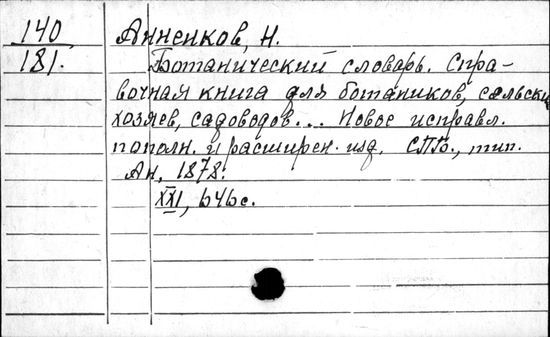 140
181.
Анненков, Н.
Ботанический словарь. Спра-
вочная книга для ботаников, сельских
хозяев, садоводов... Новое исправл.
пополн. и расширен. изд. СПб., тип.
Ан, 1878.
XXI, 646с.